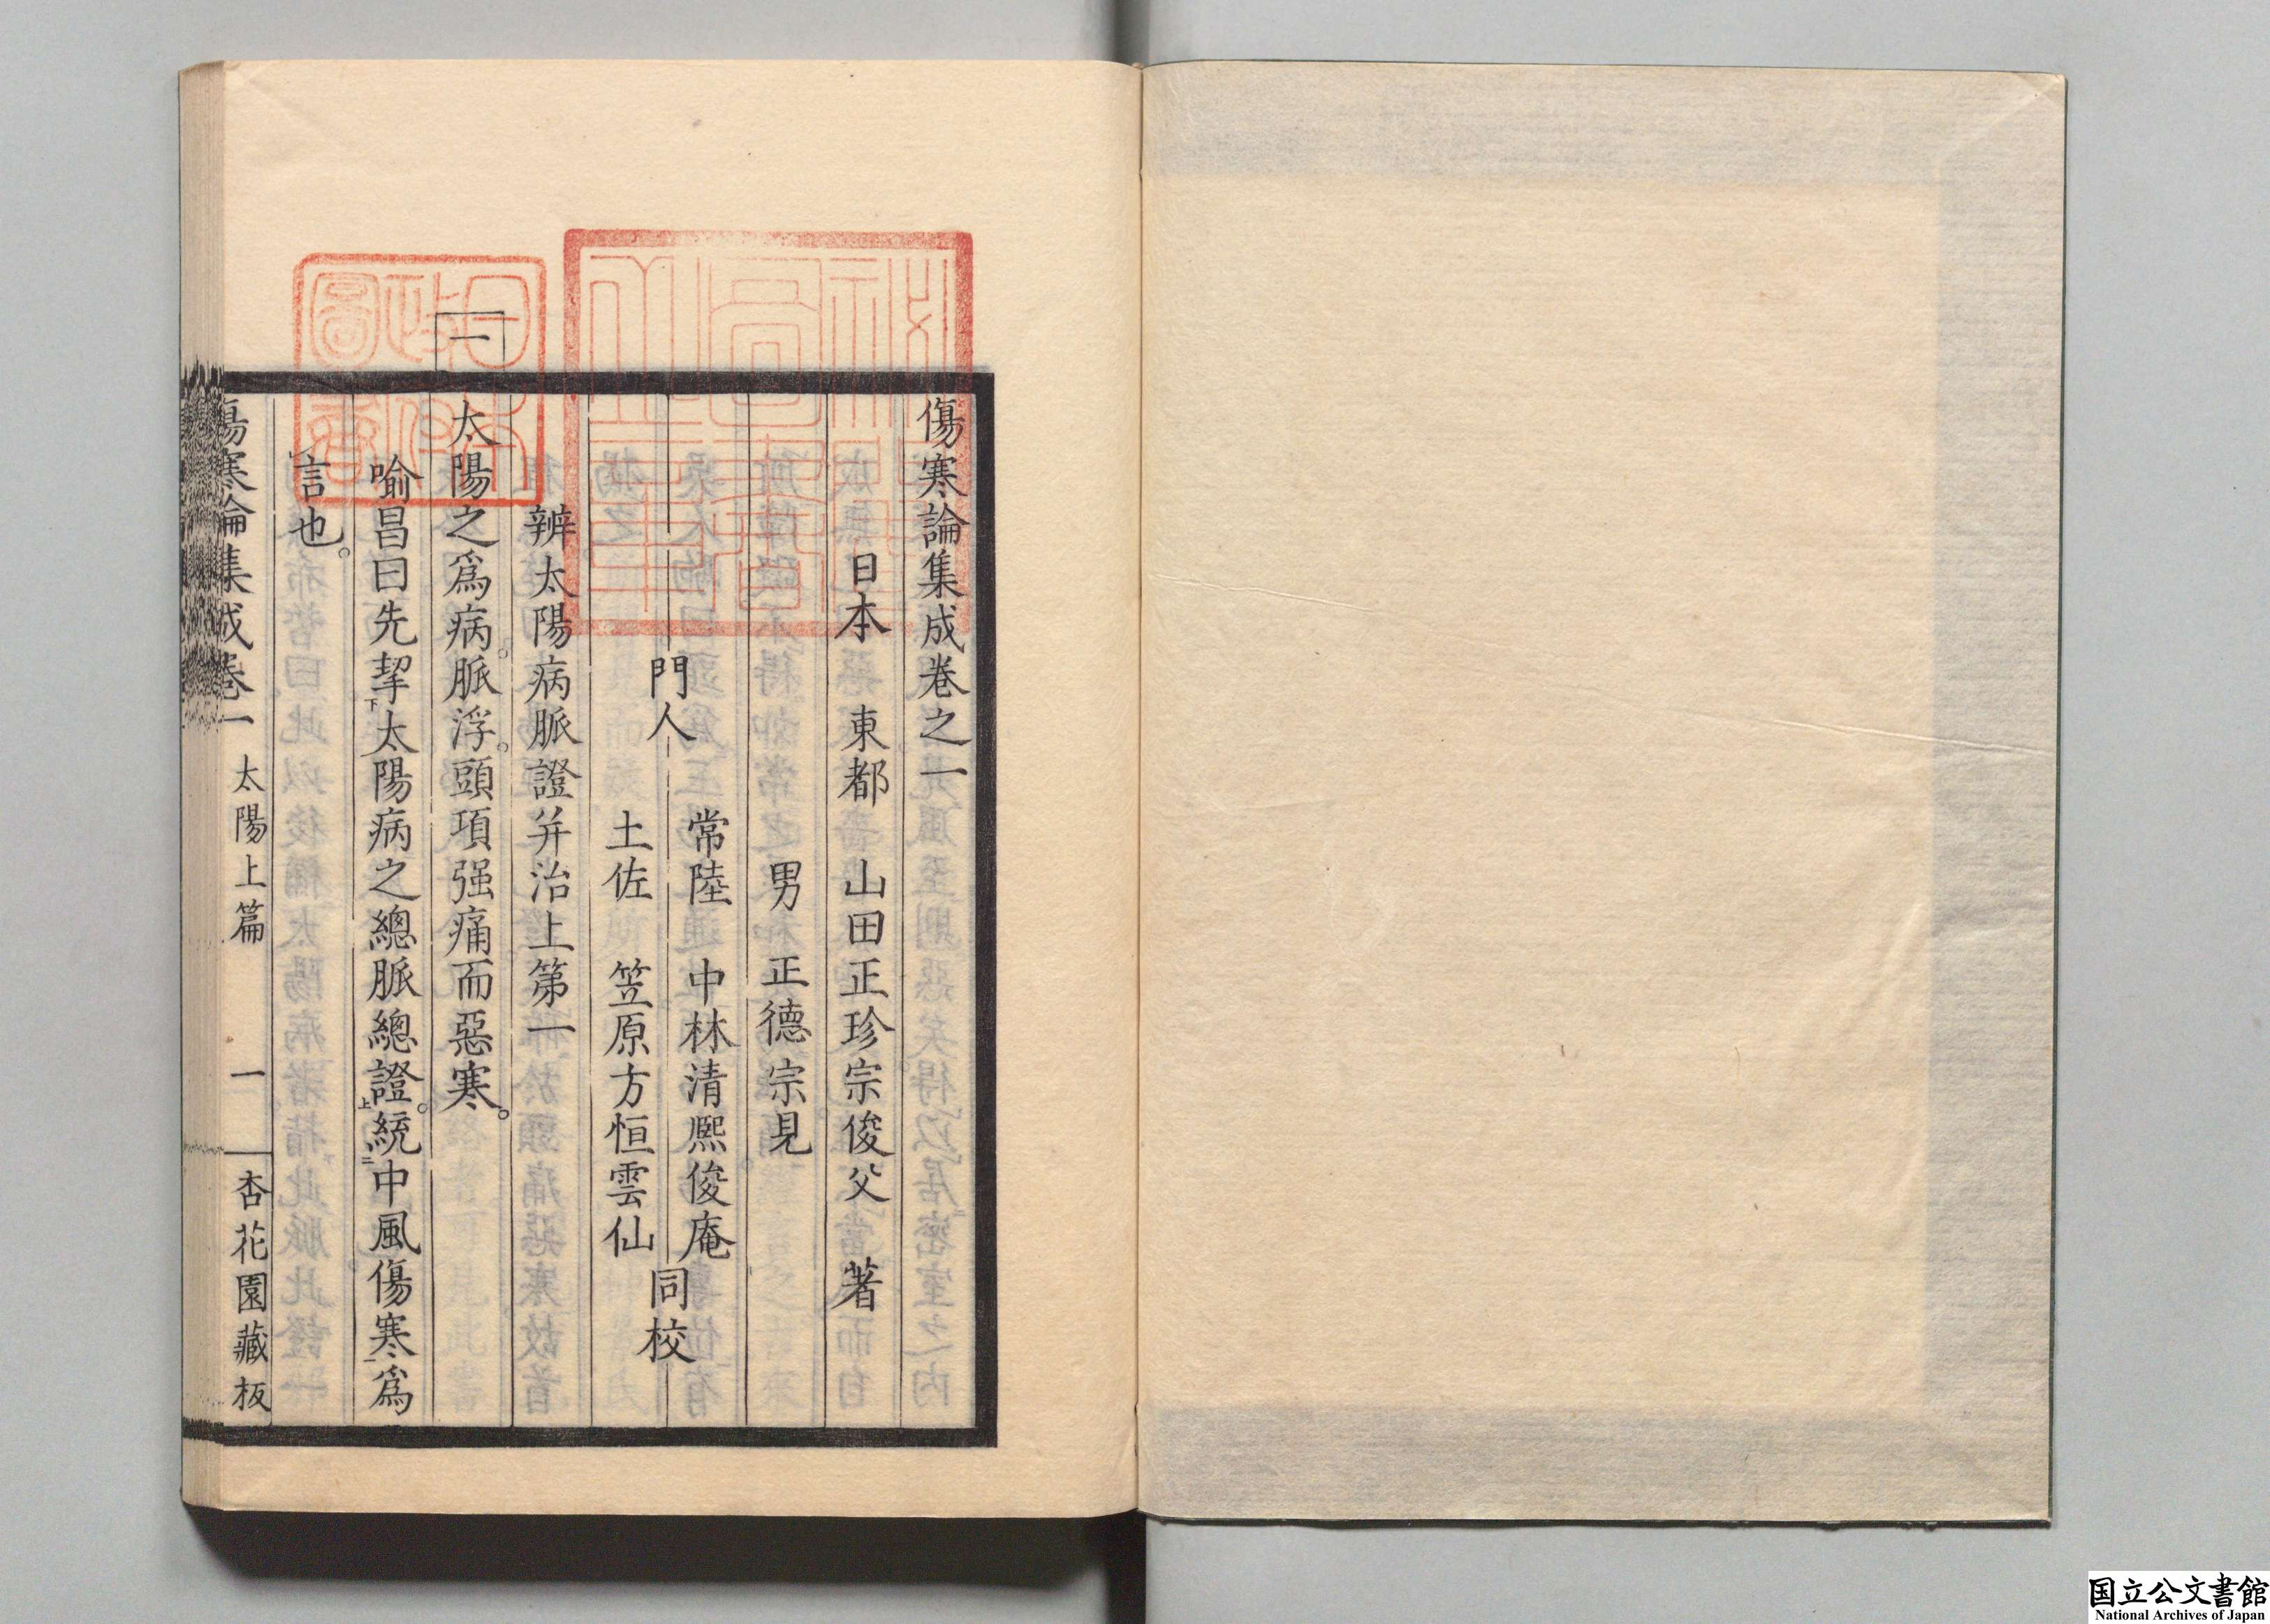 傷寒論集成卷之一
日本　東都　山田正珍宗俊父　著
男　正德宗見
門人　常陸　中林清熙俊庵　同校
土佐　笠原方恒雲仙
辨太陽病脈證并治上第一
一
太陽之爲病。脈浮。頭項强痛而惡寒。
喻昌曰先挈下太陽病之總脈總證。上統二中風傷寒一爲
言也。
傷寒論集成卷一　太陽上篇　一　杏花園藏板
日本政府圖書
国立公文書館
National Archives of Japan